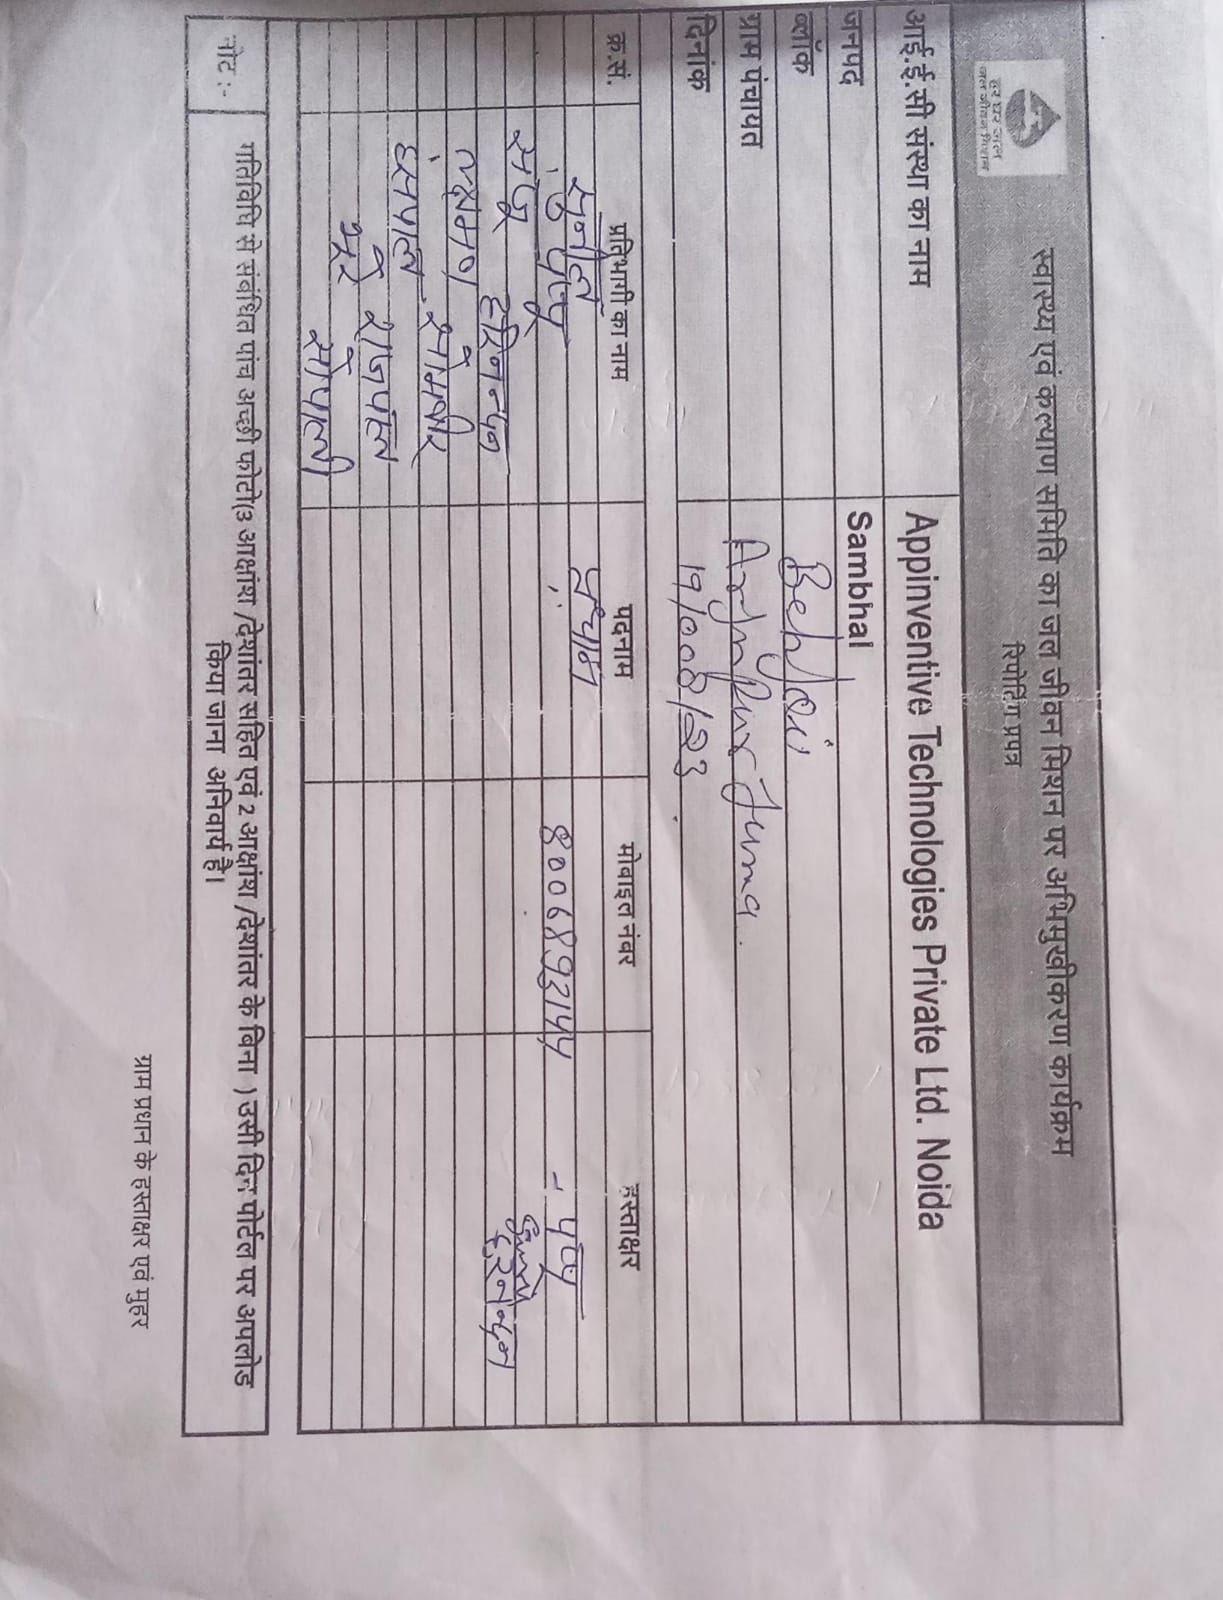 हर घर जल
जल जीवन मिशन
स्वास्थ्य एवं कल्याण समिति का जल जीवन मिशन पर अभिमुखीकरण कार्यक्रम
रिपोर्टिंग प्रपत्र
आई.ई.सी संस्था का नाम Appinventive Technologies Private Ltd. Noida
जनपद Sambhal
ब्लॉक Behjoi
ग्राम पंचायत Arjunpur Juna
दिनांक 19/008/23
क्र.सं. प्रतिभागी का नाम पदनाम मोबाइल नंबर हस्ताक्षर
सुनील
8006893144
हरिनन्दन
लक्ष्मण
सोमवीर
धर्मपाल
राजपाल
नोट :- गतिविधि से संबंधित पांच अच्छी फोटो(3 आक्षांश /देशांतर सहित एवं 2 आक्षांश /देशांतर के बिना ) उसी दिन पोर्टल पर अपलोड
किया जाना अनिवार्य है।
ग्राम प्रधान के हस्ताक्षर एवं मुहर